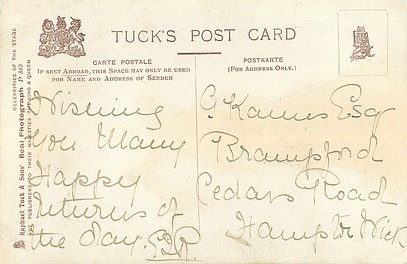 TUCK'S POST CARD
CARTE POSTALE
POSTKARTE
IF SENT ABROAD, THIS SPACE MAY ONLY BE USED
FOR NAME AND ADDRESS OF SENDER
(FOR ADDRESS ONLY.)
Wishing
you Many
Happy
returns of
the day.
G Kaines Esq
Brampford
Cedars Road
Hampton Wick
CELEBRITIES OF THE STAGE
Raphael Tuck & Sons' Real Photograph P. 819
ART PUBLISHERS TO THEIR MAJESTIES THE KING & QUEEN